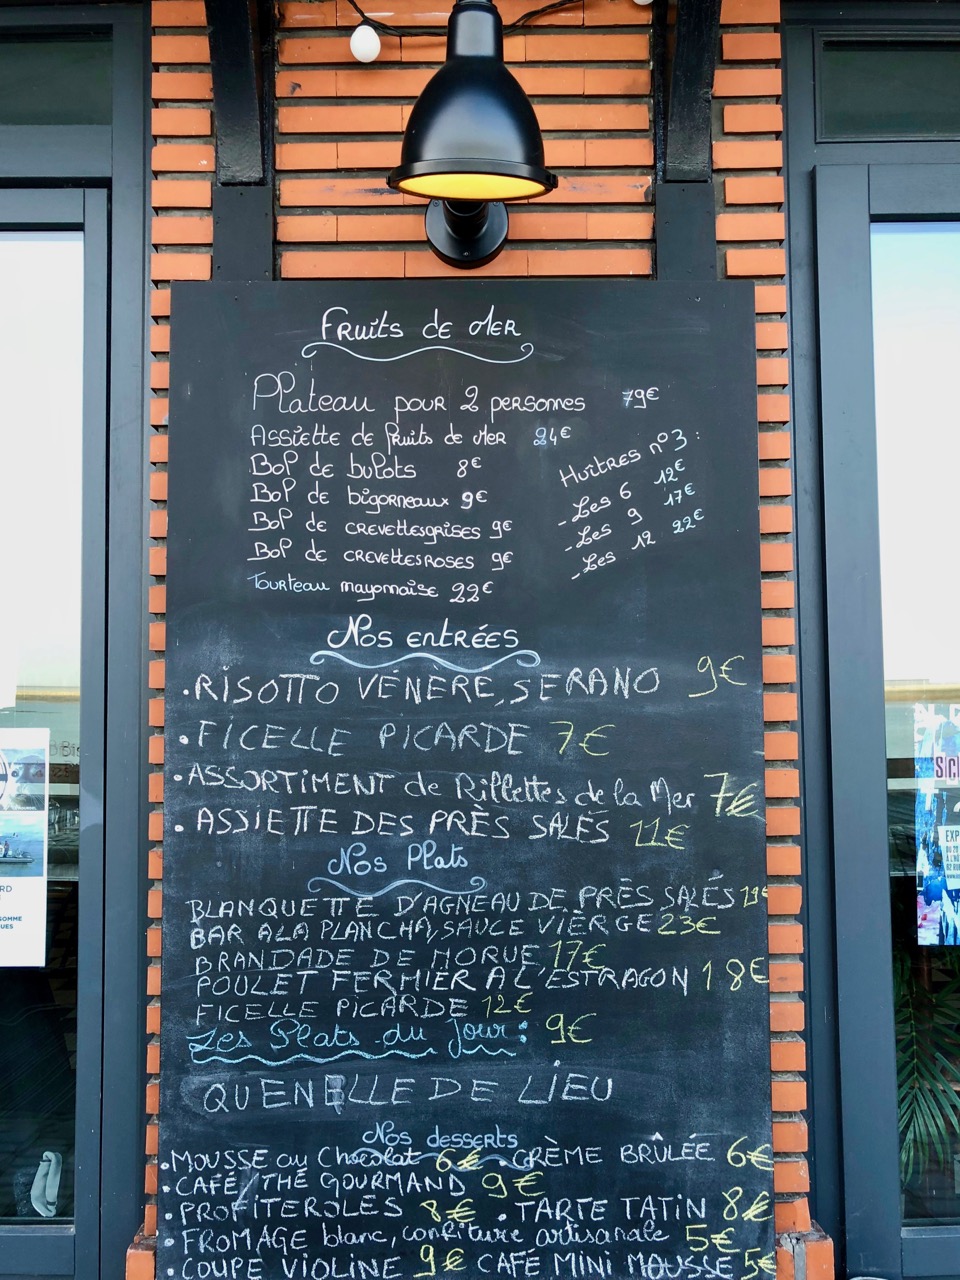 Fruits de Mer
Plateau pour 2 personnes 79€
Assiette de fruits de Mer 24€
Bol de bulots 8€
Bol de bigorneaux 9€
Bol de crevettes grises 9€
Bol de crevettes roses 9€
Tourteau mayonnaise 22€
Huîtres n°3 :
- Les 6 12€
- Les 9 17€
- Les 12 22€
Nos entrées
. RISOTTO VÉNÈRE, SERANO 9€
. FICELLE PICARDE 7€
. ASSORTIMENT de Rillettes de la Mer 7€
. ASSIETTE DES PRÈS SALÉS 11€
Nos Plats
BLANQUETTE D'AGNEAU DE PRÈS SALÉS 19€
BAR A LA PLANCHA, SAUCE VIERGE 23€
BRANDADE DE MORUE 17€
POULET FERMIER A L'ESTRAGON 18€
FICELLE PICARDE 12€
Les Plats du Jour : 9€
QUENELLE DE LIEU
Nos desserts
. MOUSSE au Chocolat 6€ . CRÈME BRÛLÉE 6€
. CAFÉ/THÉ GOURMAND 9€
. PROFITEROLES 8€ . TARTE TATIN 8€
. FROMAGE blanc, confiture artisanale 5€
. COUPE VIOLINE 9€ CAFÉ MINI MOUSSE 5€
RD
SOMME
EXP